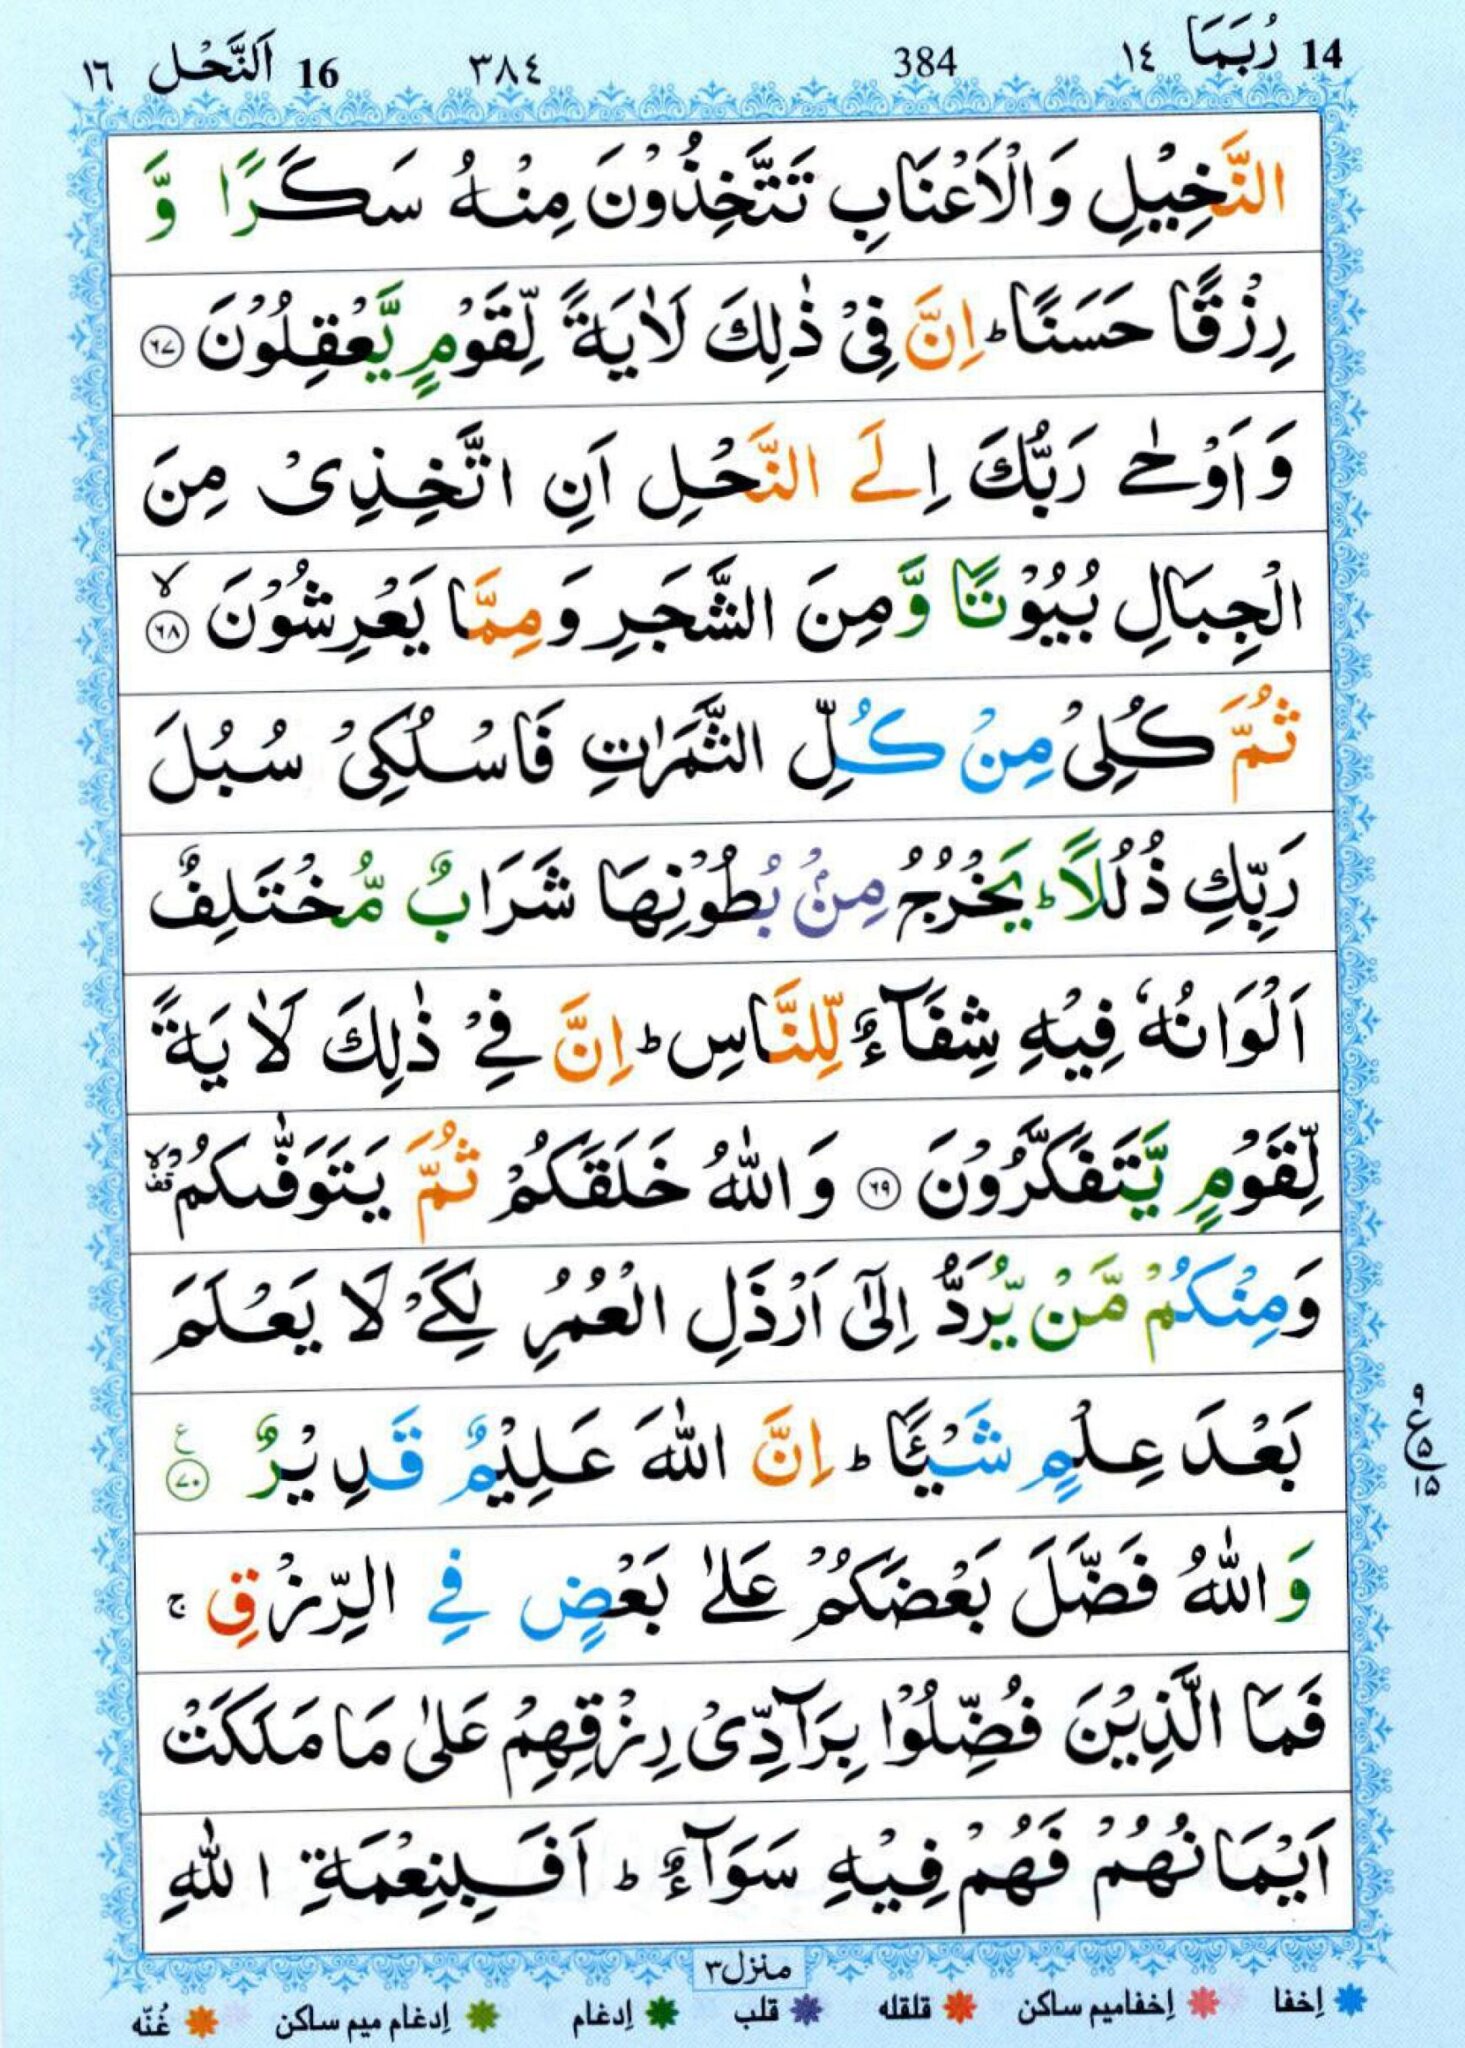 14 رُبَمَا ١٤ 384 ٣٨٤ 16 اَلنَّحْل ١٦
النَّخِيْلِ وَالْاَعْنَابِ تَتَّخِذُوْنَ مِنْهُ سَكَرًا وَّ
رِزْقًا حَسَنًا ؕ اِنَّ فِیْ ذٰلِكَ لَاٰيَةً لِّقَوْمٍ يَّعْقِلُوْنَ ﴿٦٧﴾
وَاَوْحٰى رَبُّكَ اِلَى النَّحْلِ اَنِ اتَّخِذِیْ مِنَ
الْجِبَالِ بُيُوْتًا وَّمِنَ الشَّجَرِ وَمِمَّا يَعْرِشُوْنَ ۙ﴿٦٨﴾
ثُمَّ كُلِیْ مِنْ كُلِّ الثَّمَرٰتِ فَاسْلُكِیْ سُبُلَ
رَبِّكِ ذُلُلًا ؕ يَخْرُجُ مِنْۢ بُطُوْنِهَا شَرَابٌ مُّخْتَلِفٌ
اَلْوَانُهٗ فِيْهِ شِفَآءٌ لِّلنَّاسِ ؕ اِنَّ فِیْ ذٰلِكَ لَاٰيَةً
لِّقَوْمٍ يَّتَفَكَّرُوْنَ ﴿٦٩﴾ وَاللّٰهُ خَلَقَكُمْ ثُمَّ يَتَوَفّٰىكُمْ ۙقف
وَمِنْكُمْ مَّنْ يُّرَدُّ اِلٰٓى اَرْذَلِ الْعُمُرِ لِكَیْ لَا يَعْلَمَ
بَعْدَ عِلْمٍ شَيْـًٔا ؕ اِنَّ اللّٰهَ عَلِيْمٌ قَدِيْرٌ ﴿٧٠﴾ ع
٩ ع ۵ ١۵
وَاللّٰهُ فَضَّلَ بَعْضَكُمْ عَلٰى بَعْضٍ فِی الرِّزْقِ ۚ
فَمَا الَّذِيْنَ فُضِّلُوْا بِرَآدِّیْ رِزْقِهِمْ عَلٰى مَا مَلَكَتْ
اَيْمَانُهُمْ فَهُمْ فِيْهِ سَوَآءٌ ؕ اَفَبِنِعْمَةِ اللّٰهِ
منزل ٣
اِخفا اِخفامیم ساکن قلقله قلب اِدغام اِدغام میم ساکن غُنّه